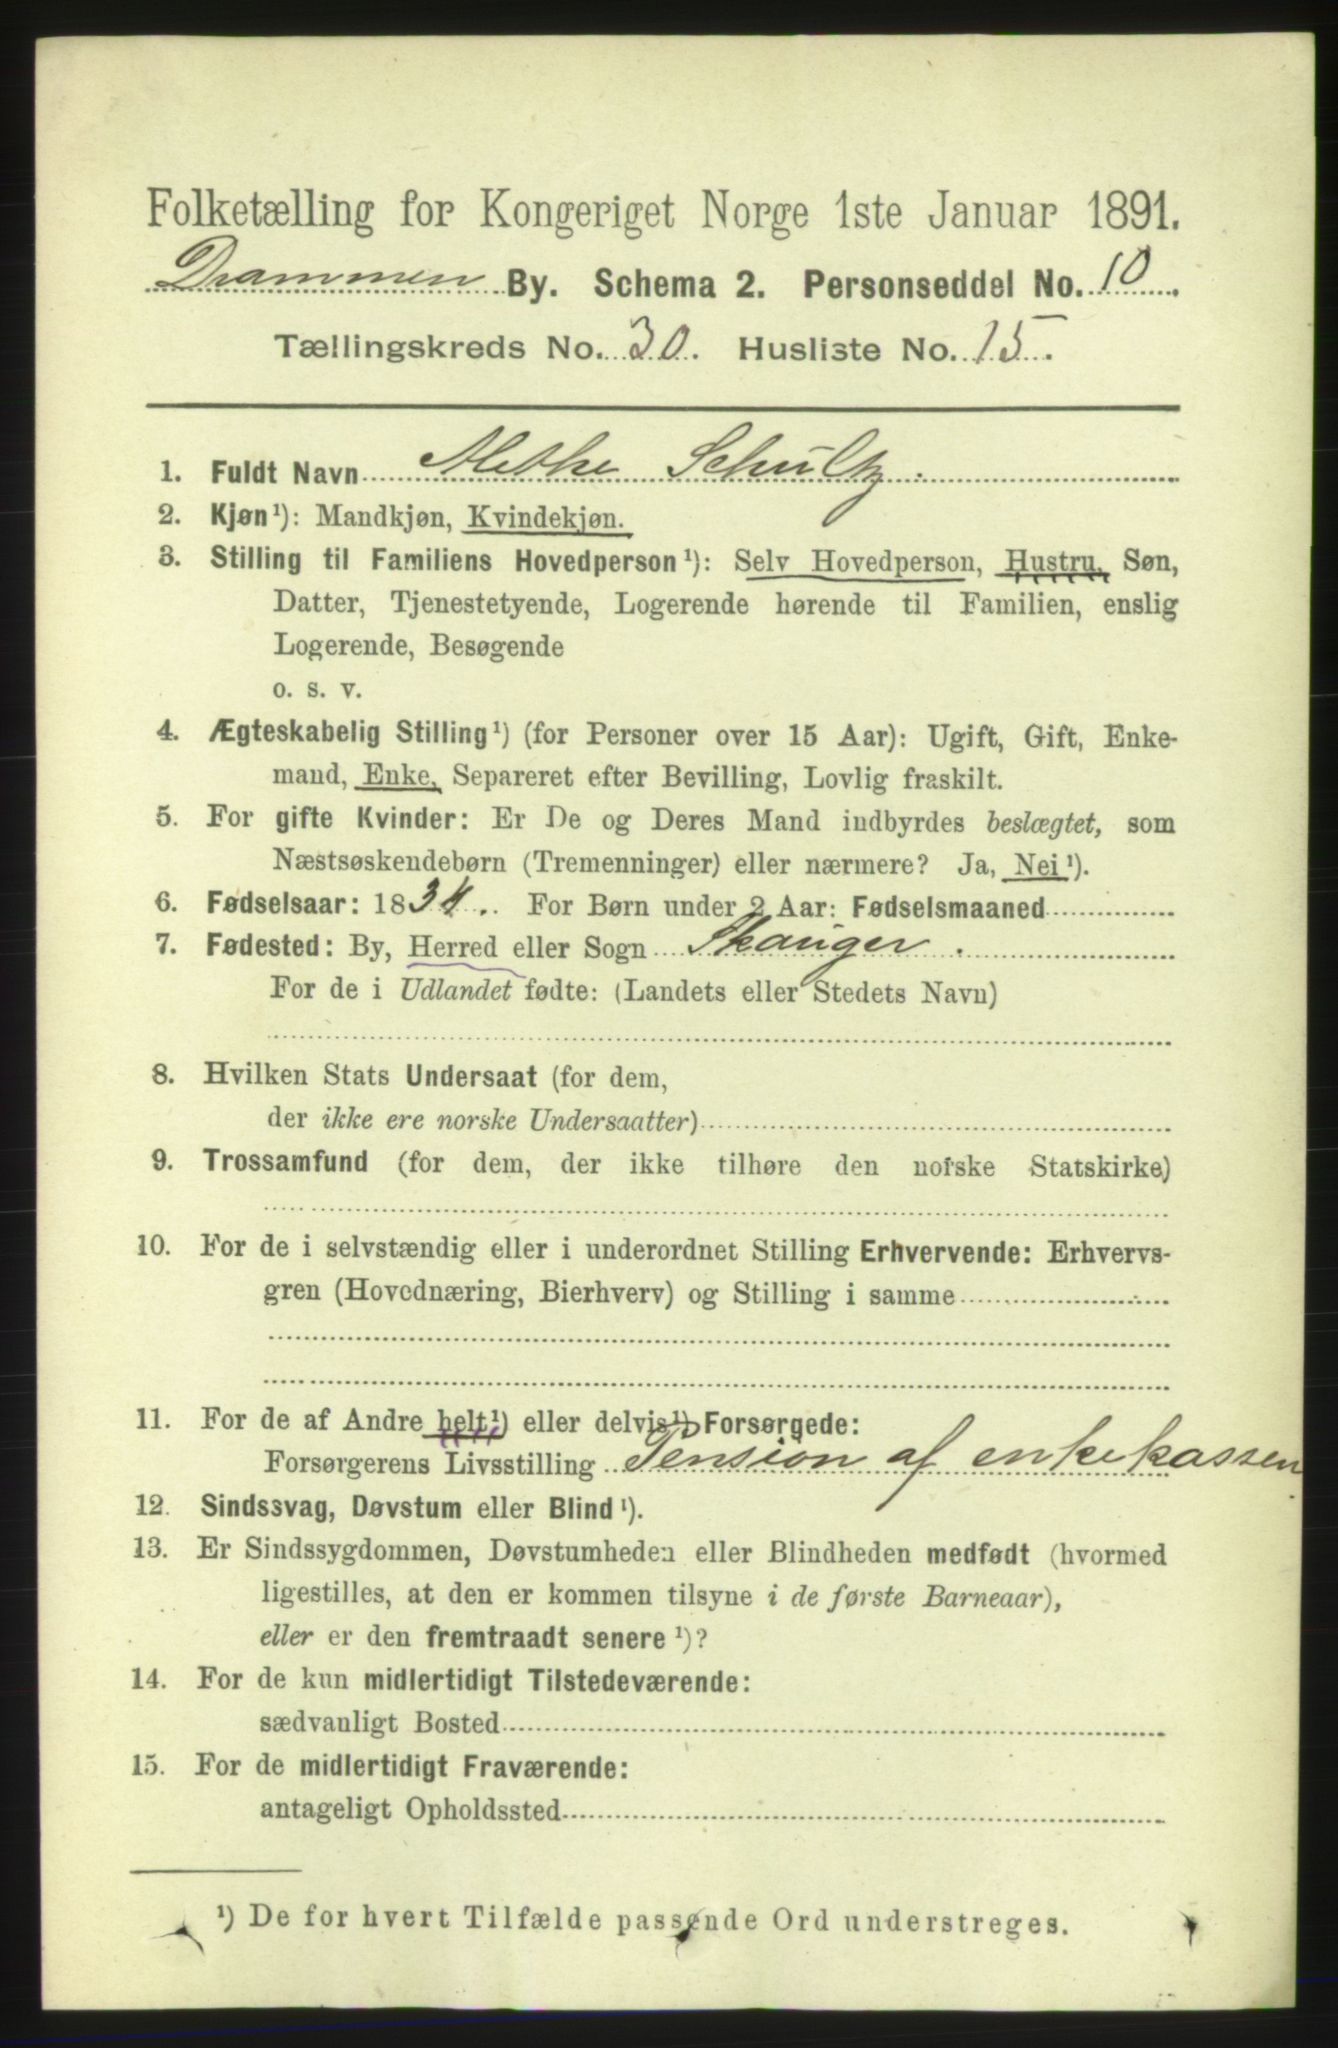 Folketælling for Kongeriget Norge 1ste Januar 1891.
Drammen By. Schema 2. Personseddel No. 10.
Tællingskreds No. 30. Husliste No. 15.
1. Fuldt Navn Methe Schultz.
2. Kjøn¹): Mandkjøn, Kvindekjøn.
3. Stilling til Familiens Hovedperson¹): Selv Hovedperson, Hustru, Søn,
Datter, Tjenestetyende, Logerende hørende til Familien, enslig
Logerende, Besøgende
o. s. v.
4. Ægteskabelig Stilling¹) (for Personer over 15 Aar): Ugift, Gift, Enke-
mand, Enke, Separeret efter Bevilling, Lovlig fraskilt.
5. For gifte Kvinder: Er De og Deres Mand indbyrdes beslægtet, som
Næstsøskendebørn (Tremenninger) eller nærmere? Ja, Nei¹).
6. Fødselsaar: 1834. For Børn under 2 Aar: Fødselsmaaned
7. Fødested: By, Herred eller Sogn Skauger.
For de i Udlandet fødte: (Landets eller Stedets Navn)
8. Hvilken Stats Undersaat (for dem,
der ikke ere norske Undersaatter)
9. Trossamfund (for dem, der ikke tilhøre den norske Statskirke)
10. For de i selvstændig eller i underordnet Stilling Erhvervende: Erhvervs-
gren (Hovednæring, Bierhverv) og Stilling i samme
11. For de af Andre helt¹) eller delvis¹) Forsørgede:
Forsørgerens Livsstilling Pension af enkekassen
12. Sindssvag, Døvstum eller Blind¹).
13. Er Sindssygdommen, Døvstumheden eller Blindheden medfødt (hvormed
ligestilles, at den er kommen tilsyne i de første Barneaar),
eller er den fremtraadt senere¹)?
14. For de kun midlertidigt Tilstedeværende:
sædvanligt Bosted
15. For de midlertidigt Fraværende:
antageligt Opholdssted
¹) De for hvert Tilfælde passende Ord understreges.